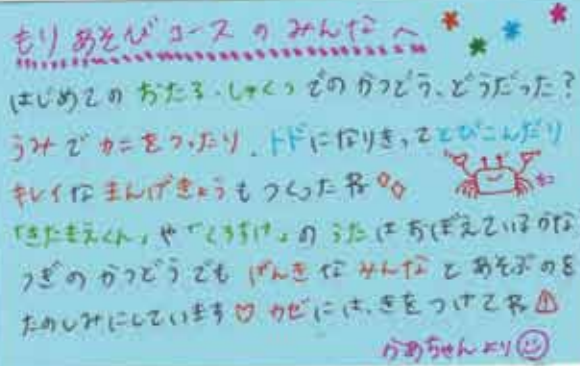 もりあそびコースのみんなへ
はじめての おたる・しゅくつ でのかつどう、どうだった?
うみで カニをつったり、トドになりきってとびこんだり
キレイな まんげきょうもつくったね
「きたまえくん」や「くろすけ」の うたはおぼえているかな
つぎのかつどうでも げんきな みんなと あそぶのを
たのしみにしています♡ カゼには、きをつけてね⚠
かあちゃんより☺